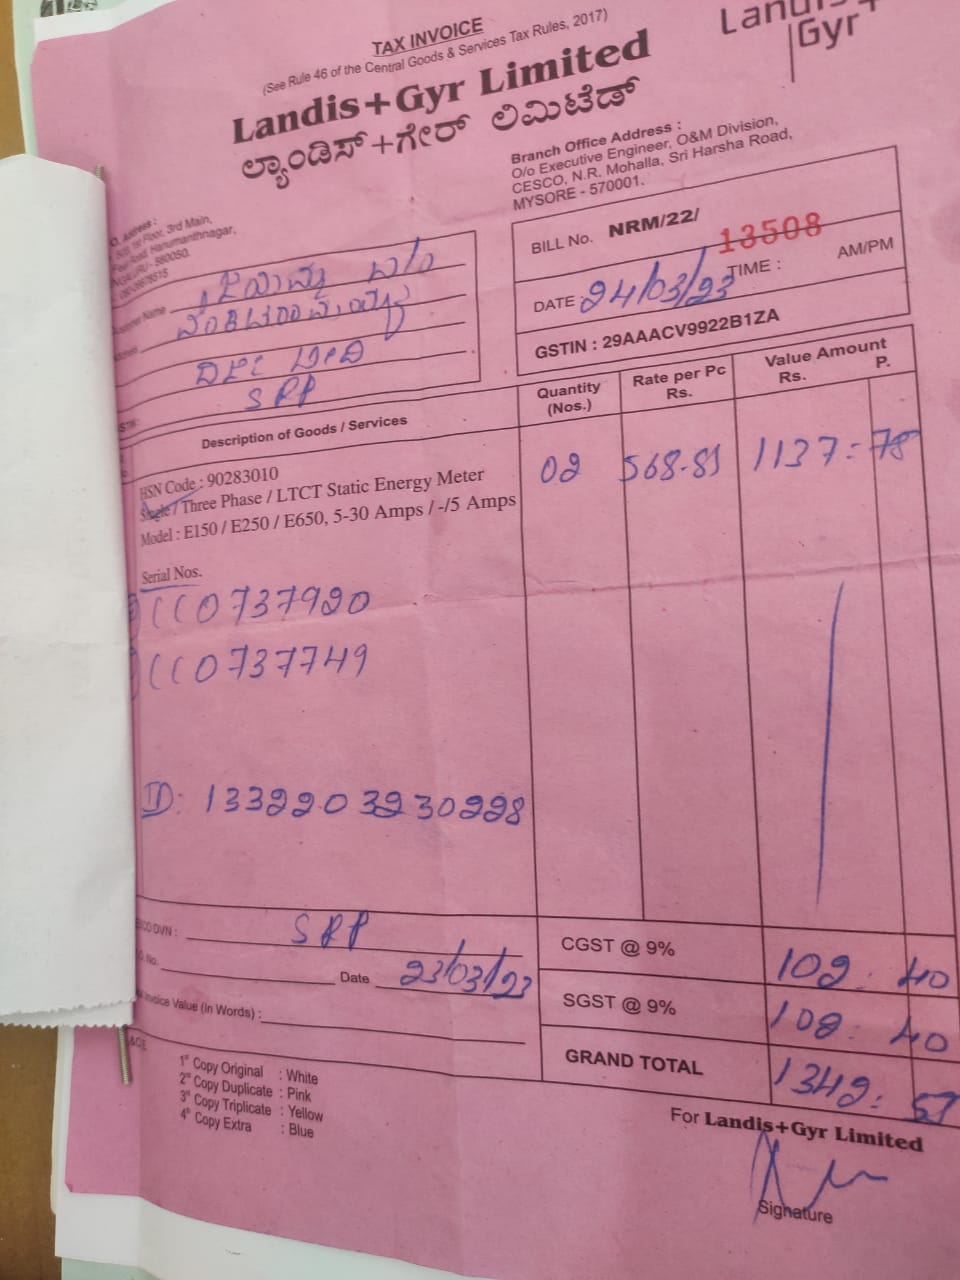 TAX INVOICE
(See Rule 46 of the Central Goods & Services Tax Rules, 2017)
Landis+Gyr Limited
ಲ್ಯಾಂಡಿಸ್+ಗೇರ್ ಲಿಮಿಟೆಡ್
Landis+
Gyr
Branch Office Address :
O/o Executive Engineer, O&M Division,
CESCO, N.R. Mohalla, Sri Harsha Road,
MYSORE - 570001.
1st Floor, 3rd Main,
Road, Hanumanthnagar,
560050.
BILL No. NRM/22/ 13508
DATE : 24/03/23 TIME : AM/PM
GSTIN : 29AAACV9922B1ZA
Name
SRP
Description of Goods / Services
Quantity (Nos.)
Rate per Pc Rs.
Value Amount Rs. P.
HSN Code : 90283010
Single / Three Phase / LTCT Static Energy Meter
Model : E150 / E250 / E650, 5-30 Amps / -/5 Amps
02 568-89 1137=78
Serial Nos.
CC0737920
CC0737749
ID: 1332203230228
DVN : SRP
No. Date 23/03/23
Invoice Value (In Words) :
CGST @ 9% 102: 40
SGST @ 9% 102: 40
GRAND TOTAL 1342: 57
1st Copy Original : White
2nd Copy Duplicate : Pink
3rd Copy Triplicate : Yellow
4th Copy Extra : Blue
For Landis+Gyr Limited
Signature